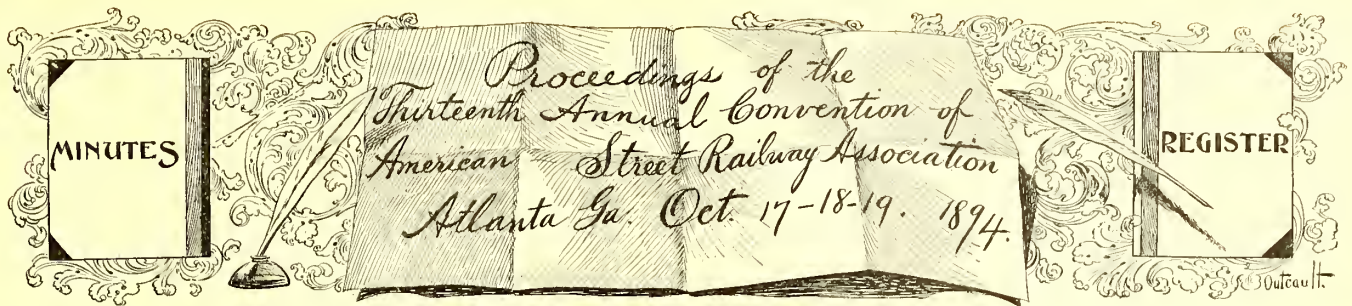 MINUTES
Proceedings of the
Thirteenth Annual Convention of
American Street Railway Association
Atlanta Ga. Oct. 17-18-19. 1894.
REGISTER
Outcault.